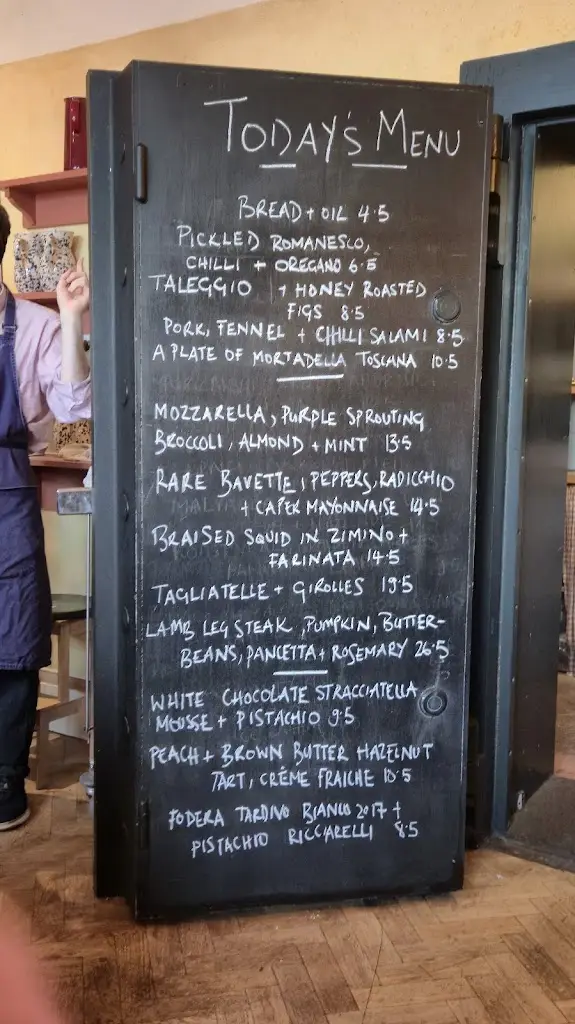 TODAY'S MENU
BREAD + OIL 4.5
PICKLED ROMANESCO,
CHILLI + OREGANO 6.5
TALEGGIO + HONEY ROASTED
FIGS 8.5
PORK, FENNEL + CHILLI SALAMI 8.5
A PLATE OF MORTADELLA TOSCANA 10.5
MOZZARELLA, PURPLE SPROUTING
BROCCOLI, ALMOND + MINT 13.5
RARE BAVETTE, PEPPERS, RADICCHIO
+ CAPER MAYONNAISE 14.5
BRAISED SQUID IN ZIMINO +
FARINATA 14.5
TAGLIATELLE + GIROLLES 19.5
LAMB LEG STEAK, PUMPKIN, BUTTER-
BEANS, PANCETTA + ROSEMARY 26.5
WHITE CHOCOLATE STRACCIATELLA
MOUSSE + PISTACHIO 9.5
PEACH + BROWN BUTTER HAZELNUT
TART, CRÉME FRAICHE 10.5
FODERA TARDIVO BIANCO 2017 +
PISTACHIO RICCARELLI 8.5